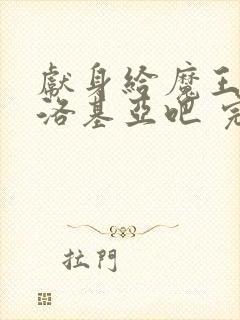 獻身給魔王
洛基亞吧
拉門